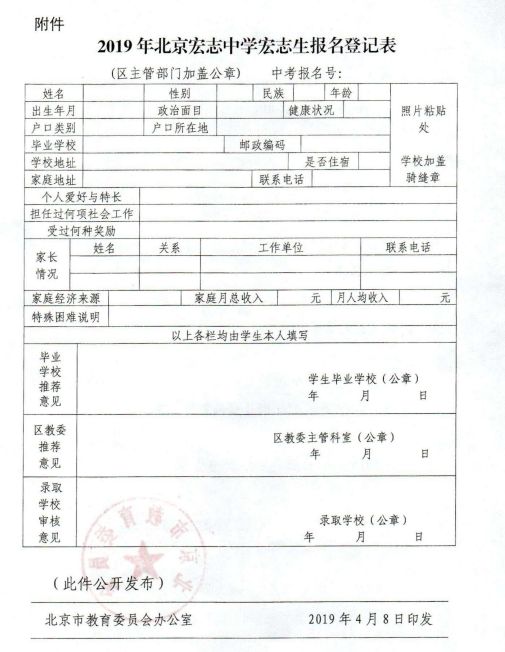 附件
2019年北京宏志中学宏志生报名登记表
(区主管部门加盖公章) 中考报名号:
姓名 性别 民族 年龄
出生年月 政治面目 健康状况
户口类别 户口所在地
照片粘贴处
学校加盖骑缝章
毕业学校 邮政编码
学校地址 是否住宿
家庭地址 联系电话
个人爱好与特长
担任过何项社会工作
受过何种奖励
家长情况
姓名 关系 工作单位 联系电话
家庭经济来源 家庭月总收入 元 月人均收入 元
特殊困难说明
以上各栏均由学生本人填写
毕业
学校
推荐
意见
学生毕业学校(公章)
年 月 日
区教委
推荐
意见
区教委主管科室(公章)
年 月 日
录取
学校
审核
意见
录取学校(公章)
年 月 日
(此件公开发布)
北京市教育委员会办公室 2019年4月8日印发